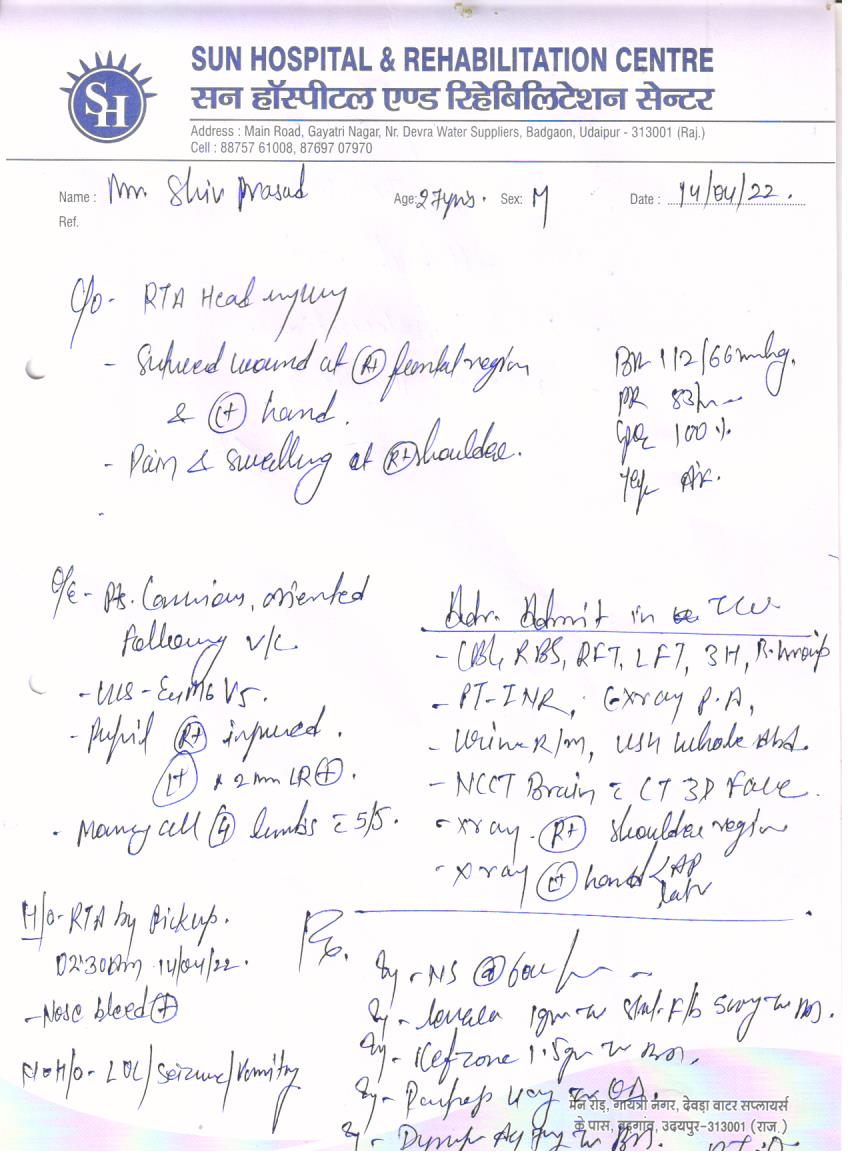 SH
SUN HOSPITAL & REHABILITATION CENTRE
सन हॉस्पीटल एण्ड रिहेबिलिटेशन सेन्टर
Address : Main Road, Gayatri Nagar, Nr. Devra Water Suppliers, Badgaon, Udaipur - 313001 (Raj.)
Cell : 88757 61008, 87697 07970
Name : Mr. Shiv Prasad Age: 27yrs. Sex: M Date : 14/04/22.
Ref.
C/o- RTA Head injury
- Sutured wound at Rt frontal region
& Lt hand.
- Pain & swelling at Rt shoulder.
112/66 mmhg.
PR 83/m
SPO2 100%
O/E- Pts. Conscious, oriented
following V/C
- E4M6V5.
- Pupil Rt injured.
Lt 2mm LR +.
Moving all 4 limbs 5/5.
Adv. Admit in ICU
- CBC, RBS, RFT, LFT, 3H, B.Group
- PT-INR, Cxray P.A,
- Urine R/M, USG Whole Abd.
- NCCT Brain c CT 3D Face.
- xray Rt shoulder region
- xray Lt hand AP
latr
H/o- RTA by Pickup.
02:30Am 14/04/22.
- Nose bleed +
No H/o- LOC/Seizure/Vomiting
Rx.
- NS @
- 1gm stat. F/b
- Kefzone 1.5gm
- 40mg OD.
मेन रोड़, गायत्री नगर, देवड़ा वाटर सप्लायर्स
के पास, बड़गांव, उदयपुर-313001 (राज.)